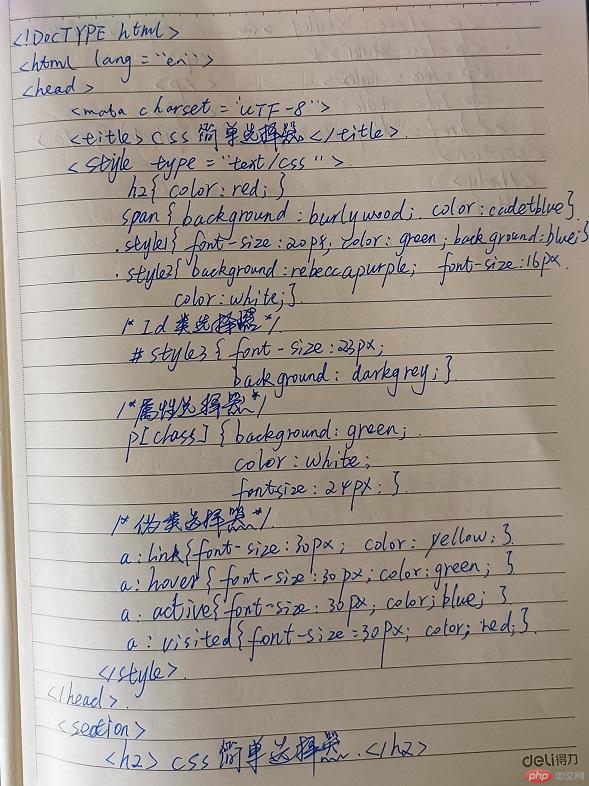 <!DocTYPE html>
<html lang="en">
<head>
<mata charset="UTF-8">
<title>css简单选择器</title>
<style type="text/css">
h2{color:red;}
span{background:burlywood; color:cadetblue}
.style1{font-size:20px, color:green; background:blue;}
.style2{background:rebeccapurple; font-size:16px
color:white;}
/*Id类选择器*/
#style3{font-size:23px;
background:darkgrey;}
/*属性选择器*/
p[class]{background:green;
color:white;
fontsize:24px;}
/*伪类选择器*/
a:link{font-size:30px; color:yellow;}
a:hover{font-size:30px;color:green;}
a:active{font-size:30px; color;blue;}
a:visited{font-size=30px; color;red;}
</style>
</head>
<section>
<h2>css简单选择器</h2>
deli得力
php 中文网